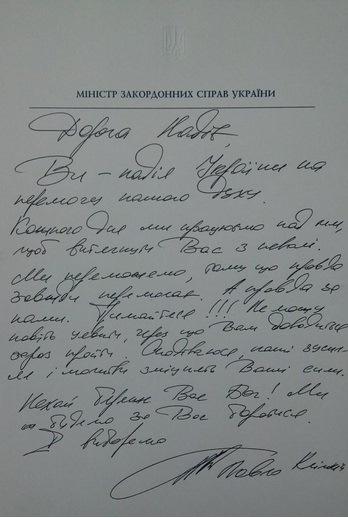 МІНІСТР ЗАКОРДОННИХ СПРАВ УКРАЇНИ
Дорога Надіє,
Ви – надія України на
перемогу нашого Духу.
Кожного дня ми працюємо над тим,
щоб витягнути Вас з неволі.
Ми переможемо, тому що правда
завжди перемагає. А правда за
нами. Тримайтеся !!! Не можу
навіть уявити, через що Вам доводиться
зараз пройти. Сподіваюся, наші зусил-
ля і молитви зміцнять Ваші сили.
Нехай береже Вас Бог! Ми
будемо за Вас боротися.
І виборемо
Павло Клімкін